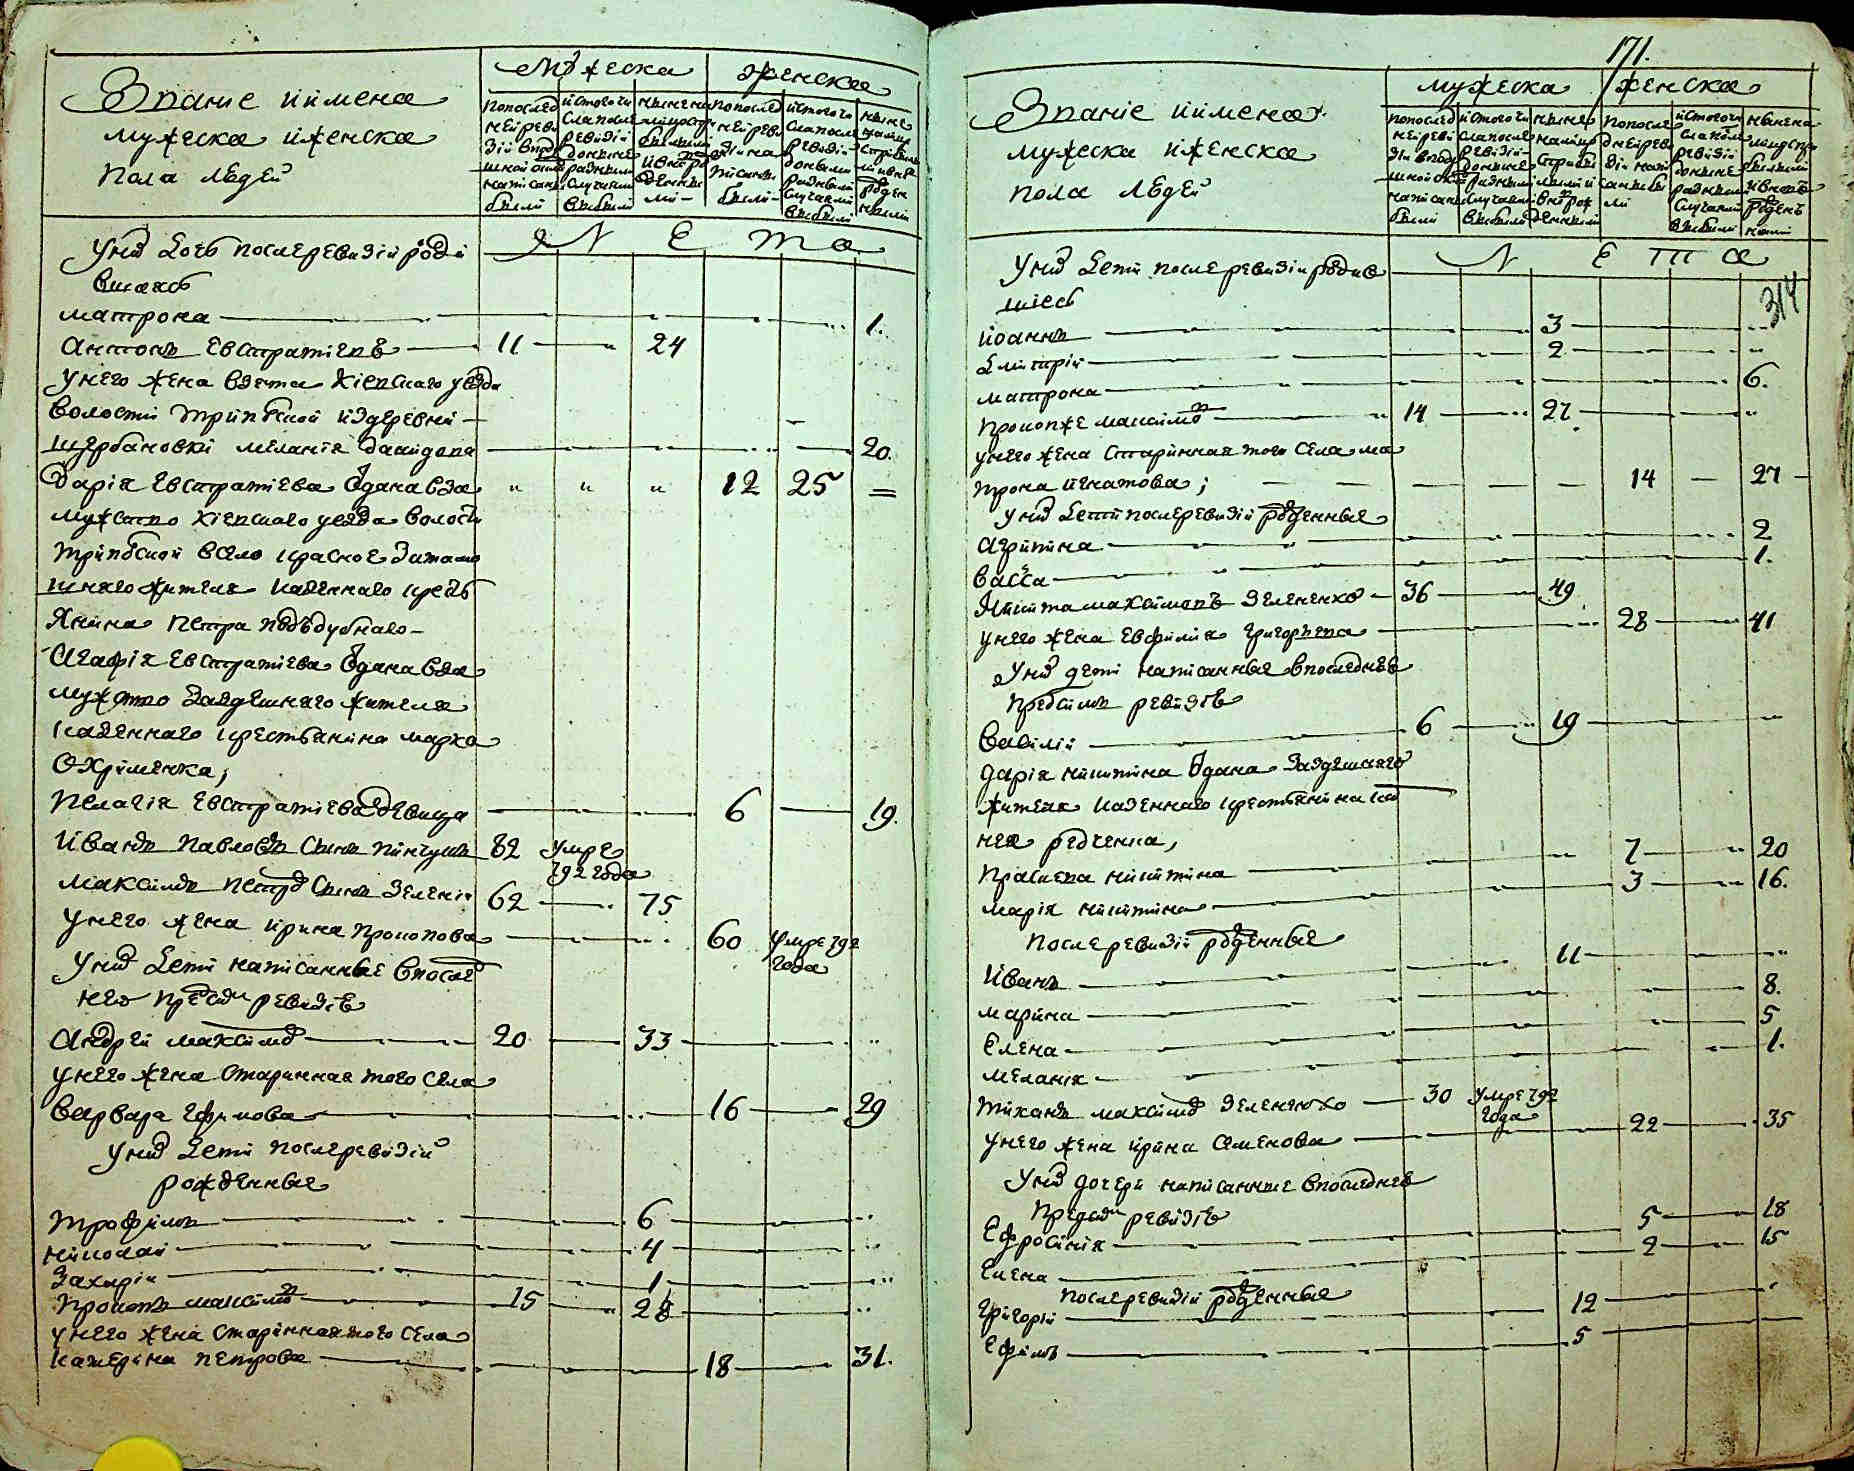 Званіе иимена
мужеска иженска
пола людей
мужеска
женска
попослед
ней реви
зіи
написан
были
истого чи
сла после
ревизіи
донине
разными
случаями
выбыли
ныне на
были
попослед
ней реви
зіи на
писаны
были
истого чи
сла после
ревизіи
донине
разными
случаями
выбыли
ныне
Лета
Унихъ дочь послеревизіи роди
вшаясь
матрона 1.
антонъ Евстратіевъ 11 24
унего жена взята Кіевскаго уезда
волости трипольской издеревни
щербановки меланія давидова 20.
дарія Евстратіева одана вза 12 25
мужство Кіевскаго уезда волости
трипольской всело красное затамо
шняго жителя казеннаго кресть
янина петра поддубнаго
агафія Евстратіева одана вза
мужство заздешнаго жителя
казеннаго крестьянина марка
Охріменка;
пелагія Евстратіева девица 6 19.
Иванъ павловъ сынъ 82 умре
792 года
максимъ петровъ сынъ зелені 62 75
унего жена ирина прокопова 60 умре 792
года
унихъ дети написанные впослед
ней предъ симъ ревизіе
андрей максимовъ 20 33
унего жена старинная того села
варвара Ефимова 16 29
унихъ дети послеревизіи
рожденные
трофимъ 6
николай 4
захарія 1
прокопъ максимовъ 15 28
унего жена старинная того села
катерина петрова 18 31.
171.
Званіе иимена
мужеска иженска
пола людей
мужеска
женска
попослед
ней реви
зіи
написан
были
истого чи
сла после
ревизіи
донине
разными
случаями
выбыли
ныне
попосле
дней реви
зіи напи
саны бы
ли
истого чи
сла после
ревизіи
донине
разными
случаями
выбыли
ныне на
Лета
314
унихъ дети послеревизіи родив
шіесь
Иоаннъ 3
дмитрій 2
матрона 6.
прокопже максимовъ 14 27.
унего жена старинная того села ма
трона игнатова; 14 27
унихъ дети послеревизіи рожденные
агрипина 2
васса 1.
Никита максимовъ зелененко 36 49
унего жена евфимія григорьева 28 41
Унихъ дети написанные впоследней
предъ симъ ревизіе
василій 6 19
дарія никитина одана заздешнаго
жителя казеннаго крестьянина
редченка,
прасковія никитина 7 20
марія никитина 3 16.
послеревизіи рожденные
Иванъ 11
марина 8.
Елена 5
меланія 1.
тихонъ максимовъ зелененко 30 умре 792
года
унего жена ирина семенова 22 35
Унихъ дочери написанные впоследней
предъ симъ ревизіе
Ефросинія 5 18
Елена 2 15
послеревизіи рожденные
григорій 12
Ефимъ 5